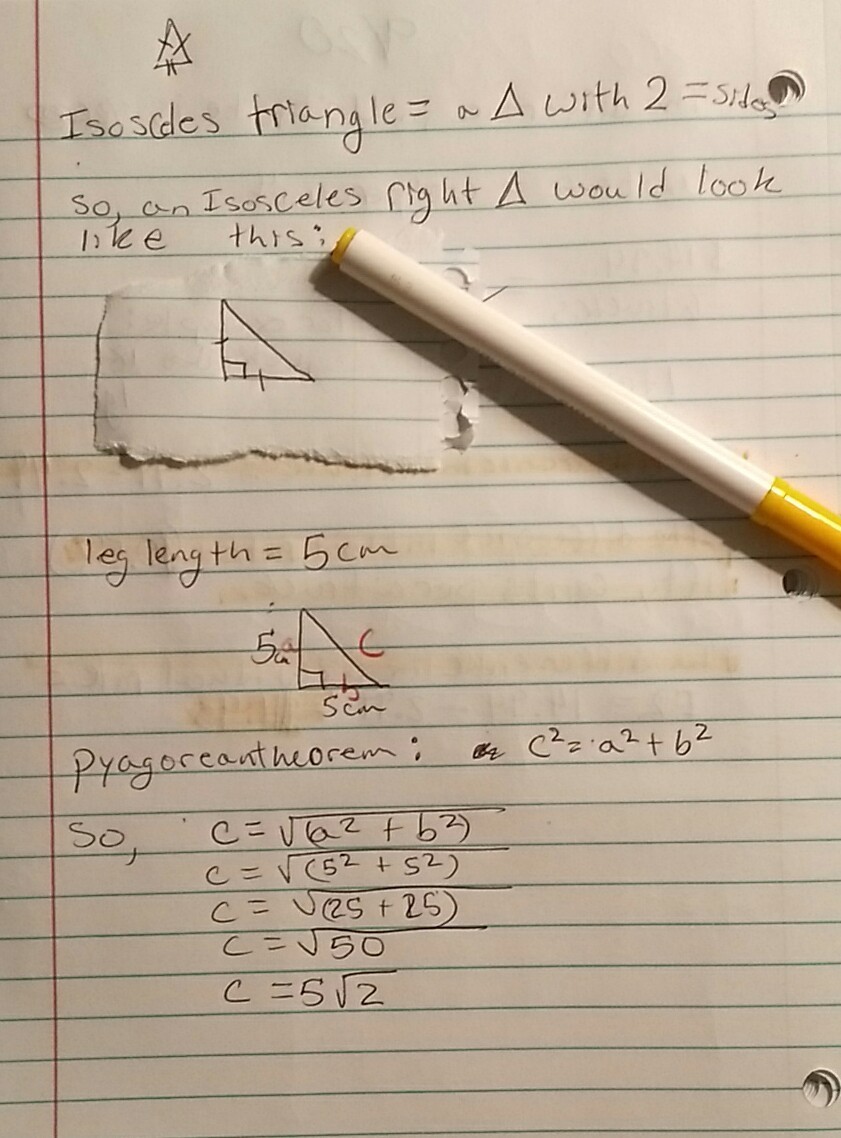 Isoscles triangle = a Δ with 2 = sides
so, an Isosceles right Δ would look
like this:
leg length = 5 cm
5 a c
b
5cm
Pyagoreantheorem: c² = a² + b²
So, c = √(a² + b²)
c = √(5² + 5²)
c = √(25 + 25)
c = √50
c = 5√2